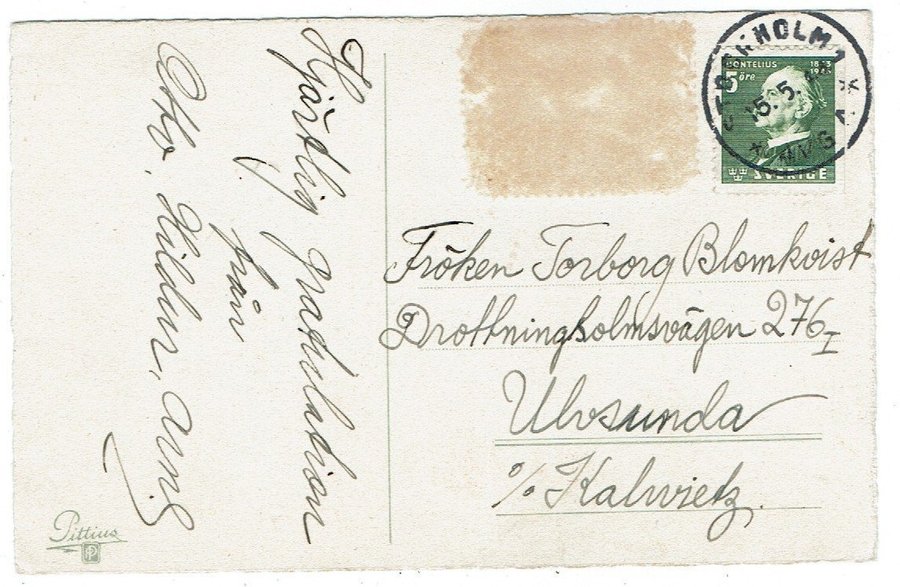 Hjärtlig gratulation
från
Otto, Hildur,
MONTELIUS 1843
5 öre 1943
SVERIGE
STOCKHOLM 1
15.5.
Fröken Torborg Blomkvist
Drottningholmsvägen 276 I
Ulvsunda
c/o Kalwietz.
Pittius
P